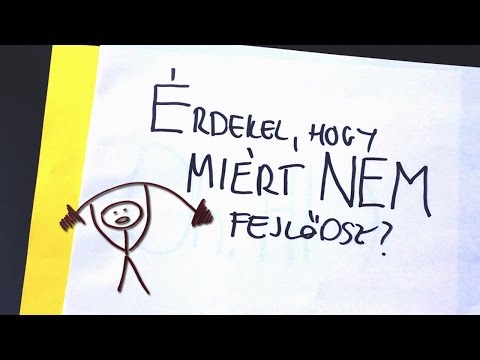 ÉRDEKEL, HOGY
MIÉRT NEM
FEJLŐDSZ?